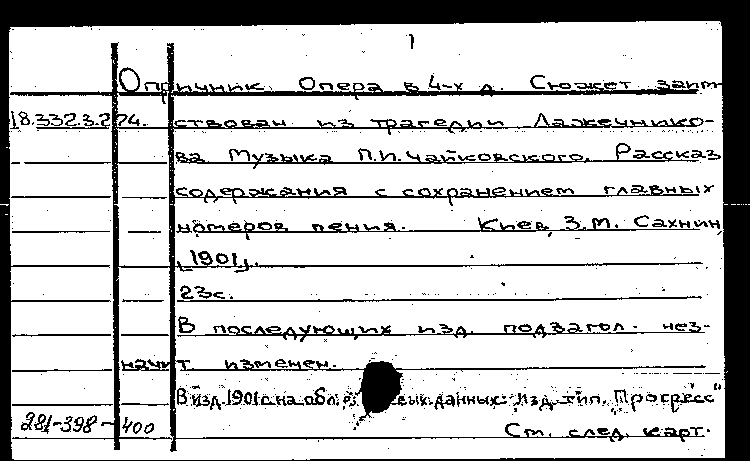 1
Опричник. Опера в 4-х д. Сюжет заим-
18.332.3.274. ствован из трагедии Лажечнико-
ва Музыка П.И. Чайковского. Рассказ
содержания с сохранением главных
номеров пения. Киев, З.М. Сахнин,
[1901].
23с.
В последующих изд. подзагол. нез-
начит изменен.
В изд. 1901г. на обл. в данных: Изд. тип. Прогресс"
281-398-400 См. след. карт.